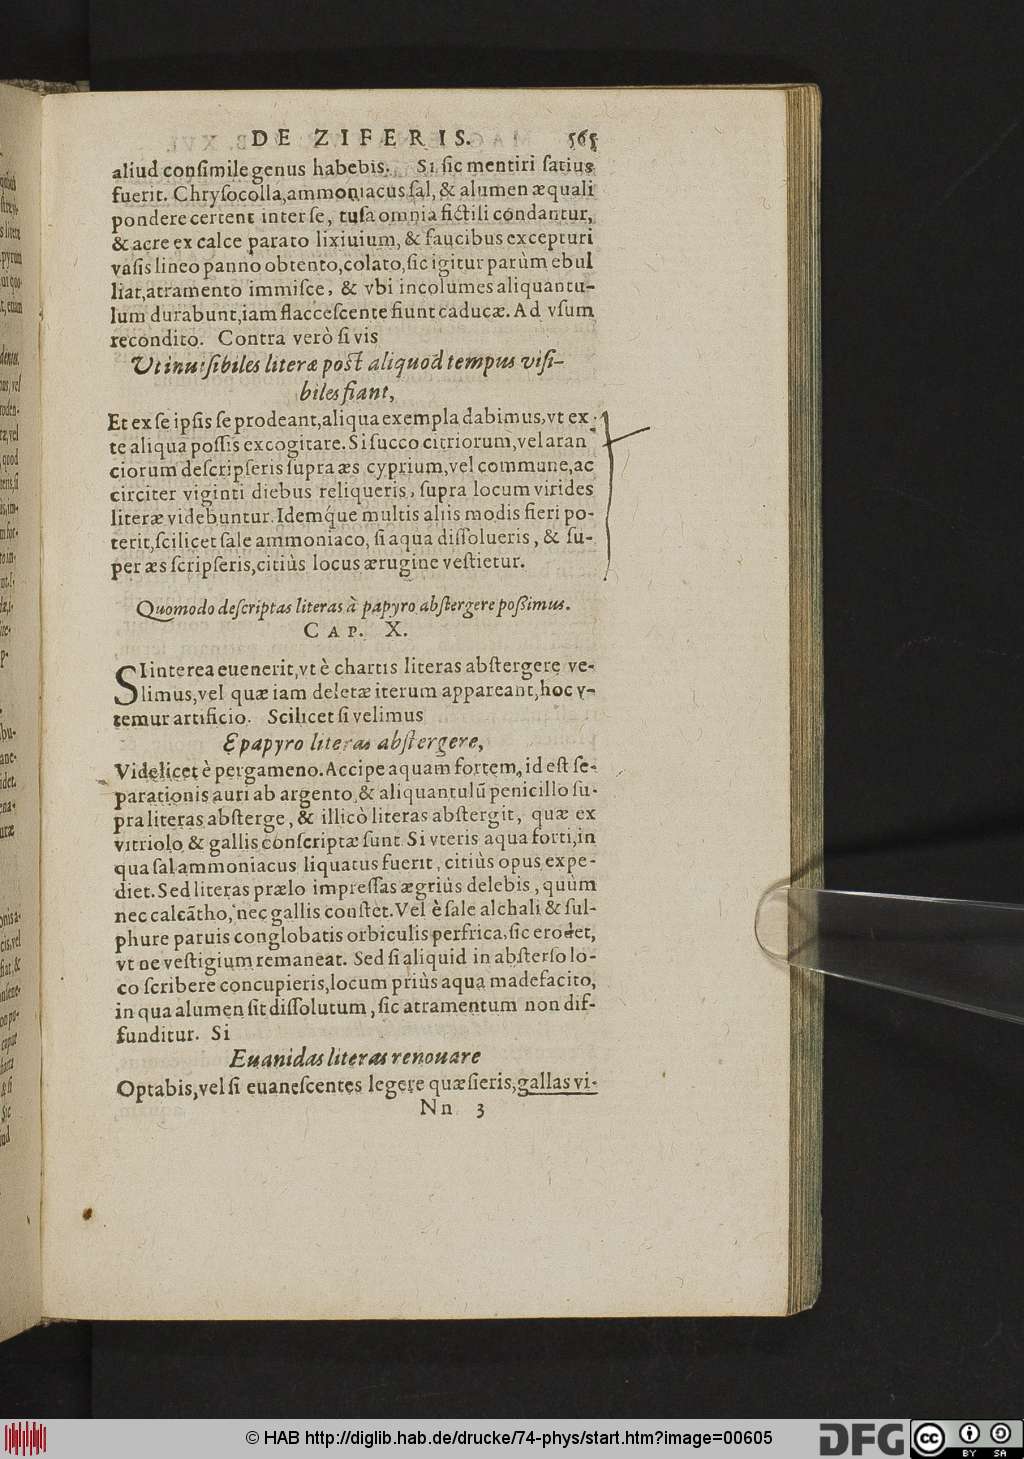 DE ZIFERIS. 565
aliud consimile genus habebis. Si sic mentiri satius
fuerit. Chrysocolla, ammoniacus sal, & alumen æquali
pondere certent inter se, tusa omnia fictili condantur,
& acre ex calce parato lixiuium, & faucibus excepturi
vasis lineo panno obtento, colato, sic igitur parùm ebul
liat, atramento immisce, & vbi incolumes aliquantu-
lum durabunt, iam flaccescente fiunt caducæ. Ad vsum
recondito. Contra verò si vis
Vt inuisibiles literæ post aliquod tempus visi-
biles fiant,
Et ex se ipsis se prodeant, aliqua exempla dabimus, vt ex
te aliqua possis excogitare. Si succo citriorum, vel aran
ciorum descripseris supra æs cyprium, vel commune, ac
circiter viginti diebus reliqueris, supra locum virides
literæ videbuntur. Idemq́ue multis aliis modis fieri po-
terit, scilicet sale ammoniaco, si aqua dissolueris, & su-
per æs scripseris, citiùs locus ærugine vestietur.
Quomodo descriptas literas à papyro abstergere possimus.
CAP. X.
SI interea euenerit, vt è chartis literas abstergere ve-
limus, vel quæ iam deletæ iterum appareant, hoc v-
temur artificio. Scilicet si velimus
E papyro literas abstergere,
Videlicet è pergameno. Accipe aquam fortem, id est se-
parationis auri ab argento, & aliquantulũ penicillo su-
pra literas absterge, & illicò literas abstergit, quæ ex
vitriolo & gallis conscriptæ sunt. Si vteris aqua forti, in
qua sal ammoniacus liquatus fuerit, citiùs opus expe-
diet. Sed literas prælo impressas ægriùs delebis, quùm
nec calcãtho, nec gallis constet. Vel è sale alchali & sul-
phure paruis conglobatis orbiculis perfrica, sic erodet,
vt ne vestigium remaneat. Sed si aliquid in absterso lo-
co scribere concupieris, locum priùs aqua madefacito,
in qua alumen sit dissolutum, sic atramentum non dif-
funditur. Si
Euanidas literas renouare
Optabis, vel si euanescentes legere quæsieris, gallas vi-
Nn 3
© HAB http://diglib.hab.de/drucke/74-phys/start.htm?image=00605
DFG
cc
BY SA